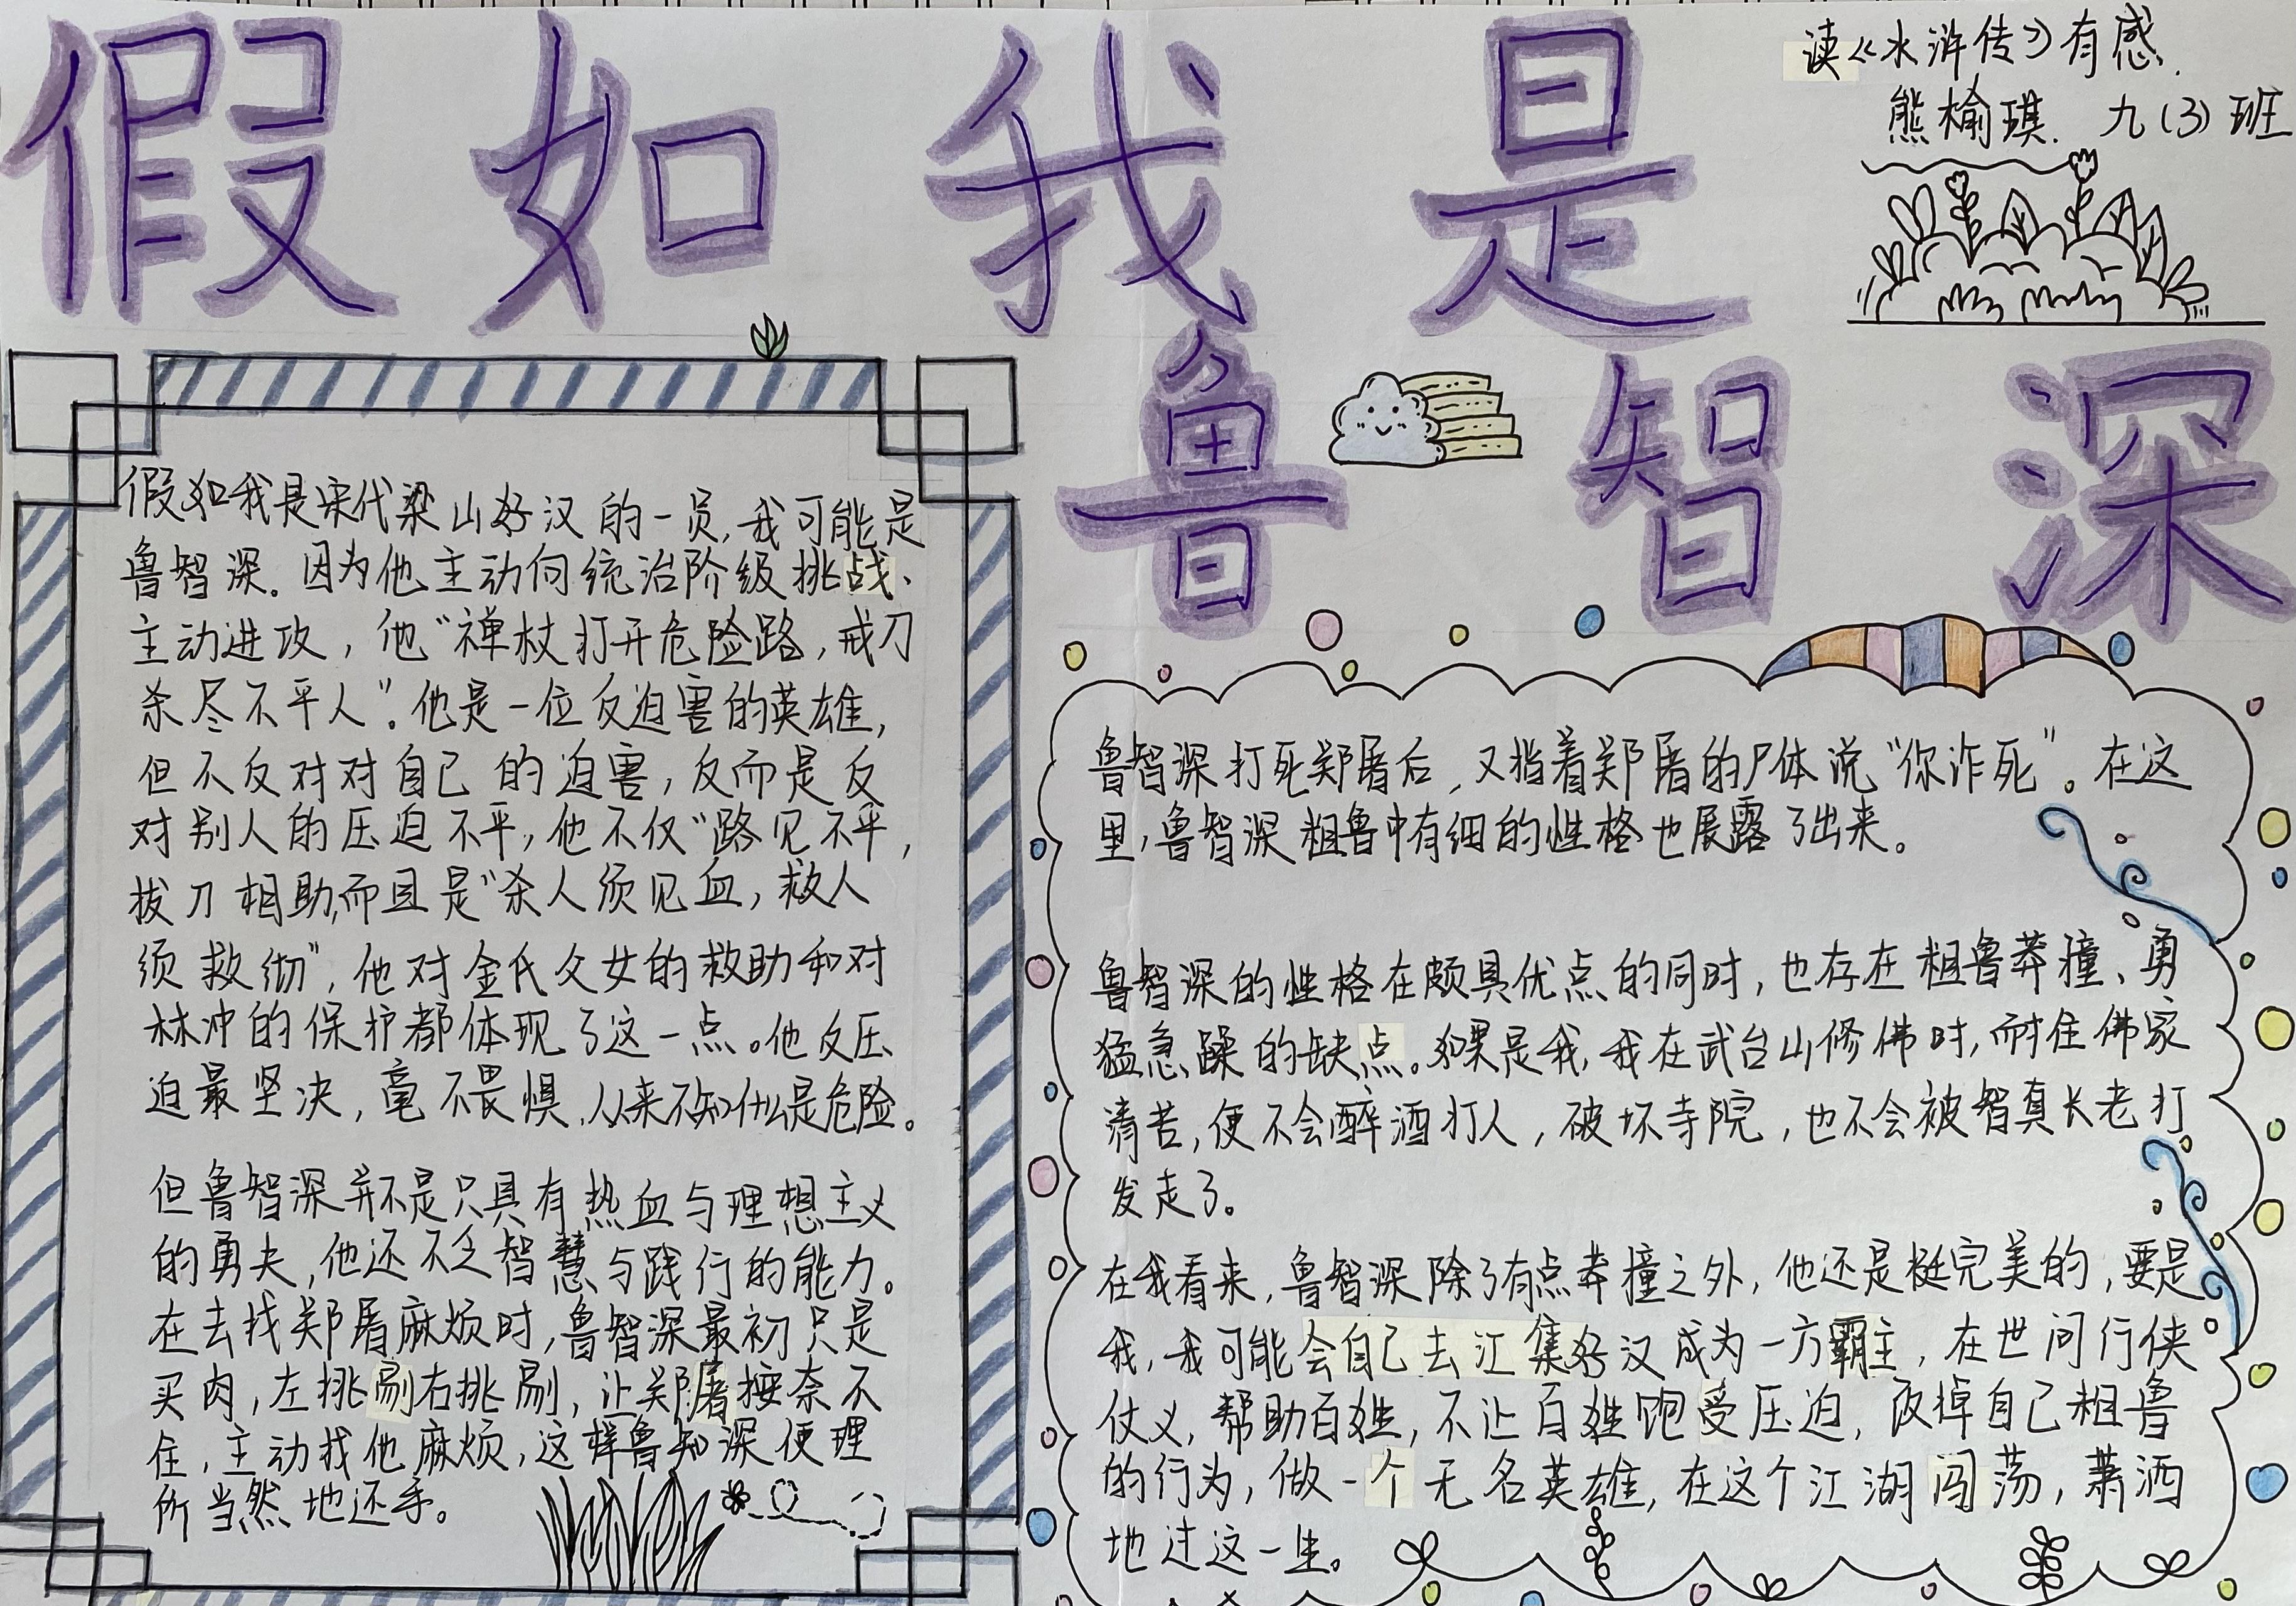 假如我是
鲁智深
读《水浒传》有感.
熊榆琪. 九(3)班
假如我是宋代梁山好汉的一员,我可能是
鲁智深。因为他主动向统治阶级挑战、
主动进攻,他“禅杖打开危险路,戒刀
杀尽不平人”。他是一位反迫害的英雄,
但不反对对自己的迫害,反而是反
对别人的压迫不平,他不仅“路见不平,
拔刀相助,而且是“杀人须见血,救人
须救彻”,他对金氏父女的救助和对
林冲的保护都体现了这一点。他反压
迫最坚决,毫不畏惧,从来不知什么是危险。
但鲁智深并不是只具有热血与理想主义
的勇夫,他还不乏智慧与践行的能力。
在去找郑屠麻烦时,鲁智深最初只是
买肉,左挑剔右挑剔,让郑屠按奈不
住,主动找他麻烦,这样鲁知深便理
所当然地还手。
鲁智深打死郑屠后,又挡着郑屠的尸体说“你诈死”。在这
里,鲁智深粗鲁中有细的性格也展露了出来。
鲁智深的性格在颇具优点的同时,也存在粗鲁莽撞、勇
猛急躁的缺点。如果是我,我在武台山修佛时,耐住佛家
清苦,便不会醉酒打人,破坏寺院,也不会被智真长老打
发走了。
在我看来,鲁智深除了有点莽撞之外,他还是挺完美的,要是
我,我可能会自己去江集好汉成为一方霸主,在世间行侠
仗义,帮助百姓,不让百姓饱受压迫,改掉自己粗鲁
的行为,做一个无名英雄,在这个江湖闯荡,萧洒
地过这一生。